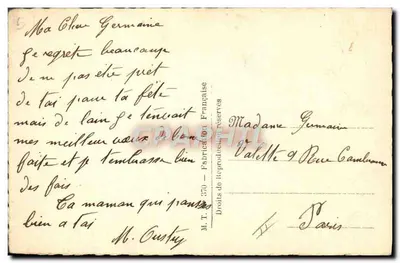 Ma Chère Germaine
je regrette beaucoup
de ne pas être prèt
de tai pour ta fête
mais de loin je t'envoit
mes meilleur vœux de bon
faite et je t'embrasse bien
des fois
Ta maman qui panse
bien a tai
M.
M. T. 350 — Fabrication Française
Droits de Reproduction réservés
Madame Germaine
Valette 9 Rue
Paris